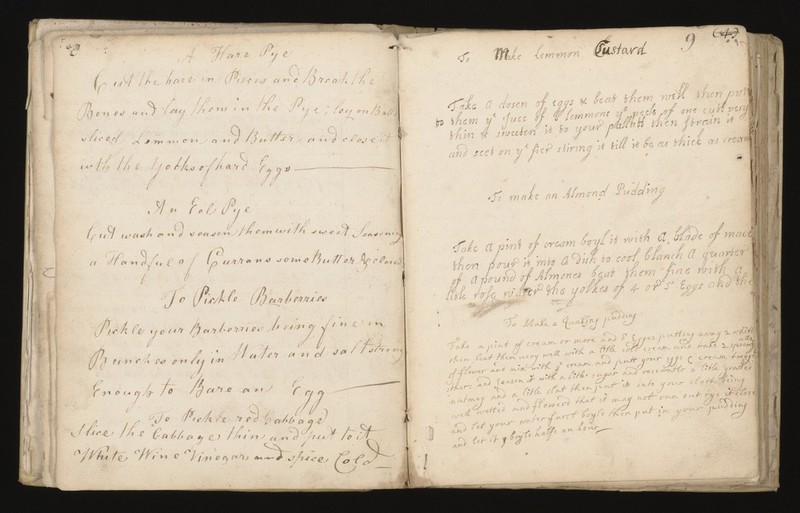 A Hare Pye
Cut the hare in Pieces and Break the
Bones and lay them in the Pye; lay on Balls
sliced Lemmon and Butter and close it
with the Yolks of hard Eggs
An Eel Pye
Cut wash and season them with sweet Seasoning
a Handful of Currans some Butter & close it
To Pickle Barberries
Pickle your Barberries being fine in
Bunches only in Water and salt strong
Enough to Bare an Egg
To Pickle red Cabbage
Slice the Cabbage thin and put to it
White Wine Vinegar and spice Cold
9
To Make Lemmon Custard
Take a dosen of eggs & beat them well then put
to them ye Juce of lemmons ye peele of one cutt very
thin & sweeten it to your pallatt then strein it
and sett on ye fier stiring it till it be as thick as cream
To make an Almond Pudding
Take a pint of cream boyl it with a blade of mace
then pour it into a dish to cool, blanch a quarter
of a pound of Almones beat them fine with a
litle rose water the yolkes of 4 or 5 Eggs and the
To Make a Quaking puding
Take a pint of cream or more and 5 Egges putting away 2 whits
then beat them very well with a litle cream and take 2 spoonfulls
of flower and mix with ye cream and putt your eggs & cream
others and season it with a litle sugar and a litle grated
nutmeg and a litle salt then put it into your cloth being
well wetted and flowerd that it may not run out tye it close
and let your water first boyle then put in your pudding
and let it boyle halfe an hour